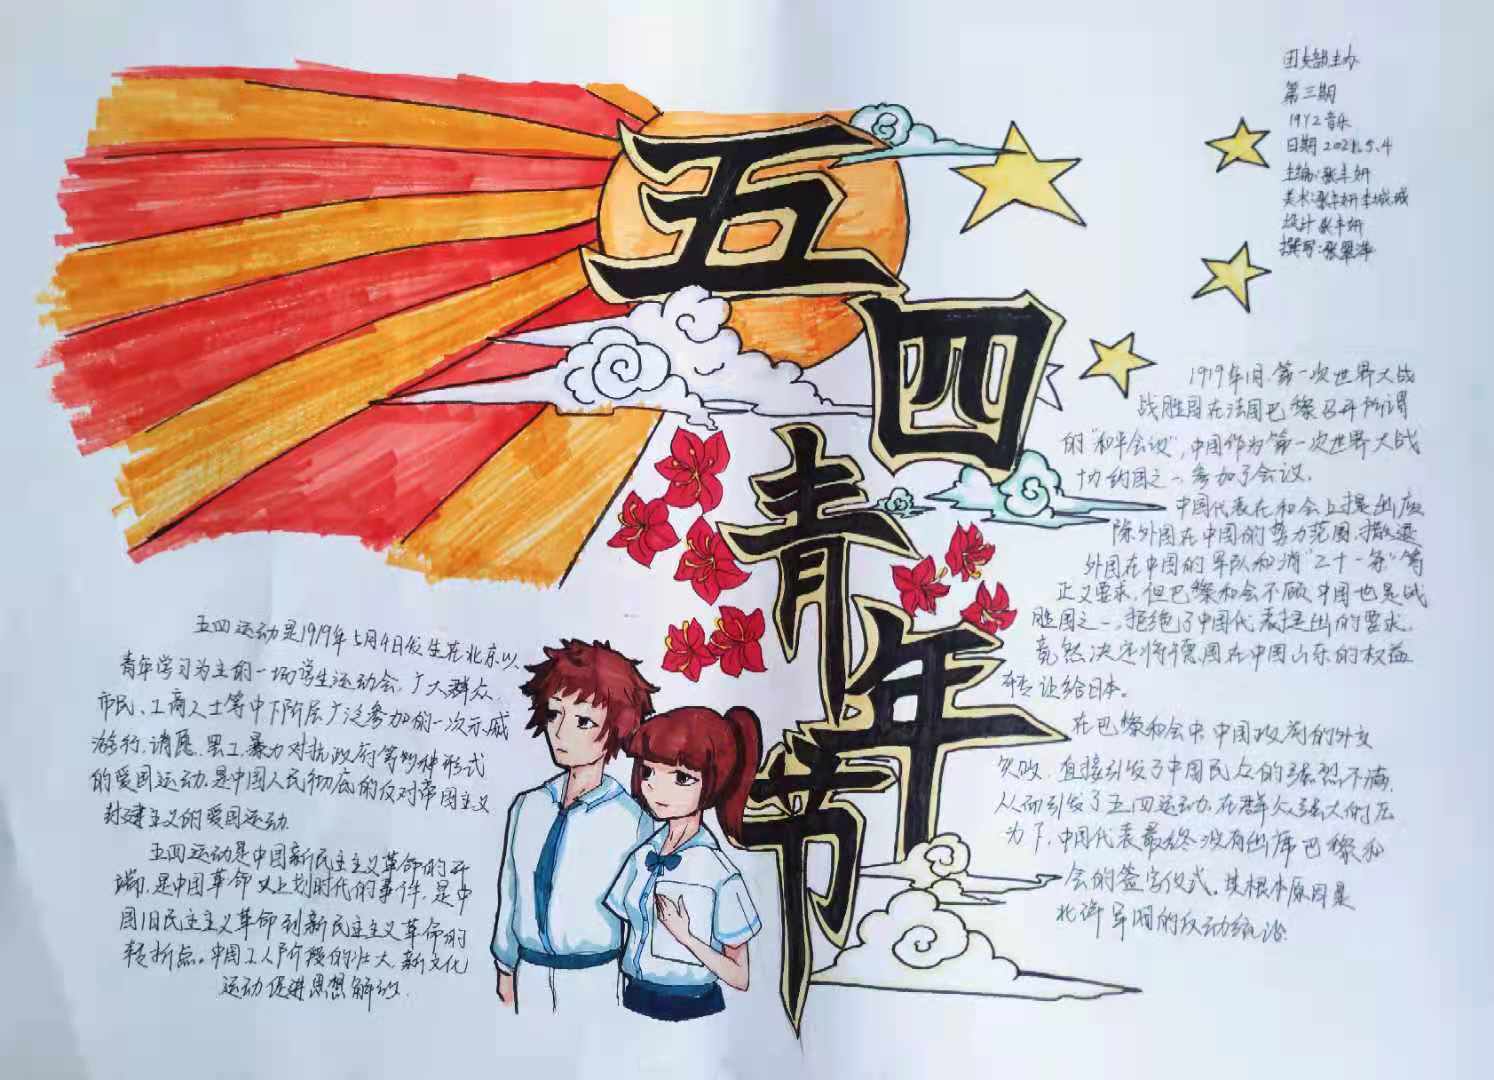 五四青年节
团支部主办
第三期
19Y2音乐
日期 2021.5.4
主编:张丰妍
美术:张丰妍李城城
设计张丰妍
撰写:张翠萍
1919年1月、第一次世界大战
战胜国在法国巴黎召开所谓
的“和平会议”,中国作为第一次世界大战
协约国之一,参加了会议。
中国代表在和会上提出废
除外国在中国的势力范围、撤退
外国在中国的军队和消“二十一条”等
正义要求,但巴黎和会不顾中国也是战
胜国之一,拒绝了中国代表提出的要求,
竟然决定将德国在中国山东的权益
转让给日本。
在巴黎和会中,中国政府的外交
失败,直接引发了中国民众的强烈不满,
从而引发了五四运动,在群众强大的压
力下,中国代表最终没有出席巴黎和
会的签字仪式。其根本原因是
北洋军阀的反动统治
五四运动是1919年5月4日发生在北京以
青年学习为主的一场学生运动会,广大群众、
市民、工商人士等中下阶层广泛参加的一次示威
游行、请愿、罢工、暴力对抗政府等多种形式
的爱国运动,是中国人民彻底的反对帝国主义
封建主义的爱国运动.
五四运动是中国新民主主义革命的开
端,是中国革命史上划时代的事件,是中
国旧民主主义革命到新民主主义革命的
转折点。中国工人阶级的壮大,新文化
运动促进思想解放.